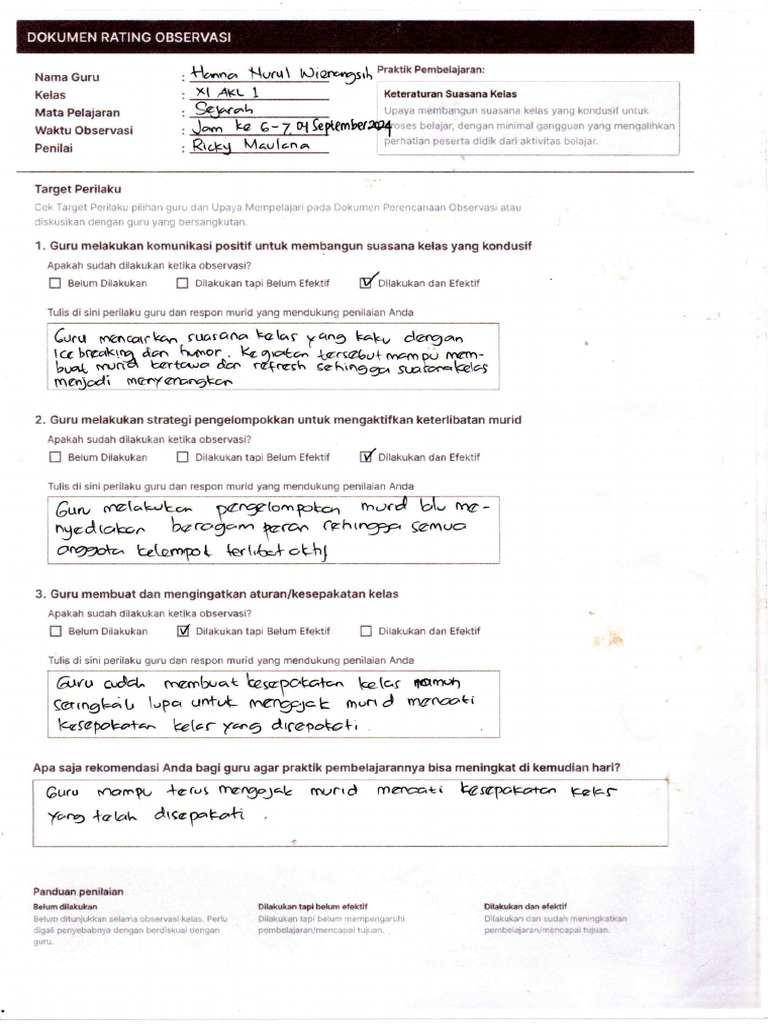 DOKUMEN RATING OBSERVASI
Nama Guru : Hanna Nurul Wienangsih
Kelas : XI AKL 1
Mata Pelajaran : Sejarah
Waktu Observasi : Jam ke 6-7, 04 September 2024
Penilai : Ricky Maulana
Praktik Pembelajaran:
Keteraturan Suasana Kelas
Upaya membangun suasana kelas yang kondusif untuk
proses belajar, dengan minimal gangguan yang mengalihkan
perhatian peserta didik dari aktivitas belajar.
Target Perilaku
Cek Target Perilaku pilihan guru dan Upaya Mempelajari pada Dokumen Perencanaan Observasi atau
diskusikan dengan guru yang bersangkutan.
1. Guru melakukan komunikasi positif untuk membangun suasana kelas yang kondusif
Apakah sudah dilakukan ketika observasi?
Belum Dilakukan Dilakukan tapi Belum Efektif Dilakukan dan Efektif
Tulis di sini perilaku guru dan respon murid yang mendukung penilaian Anda
Guru mencairkan suasana kelas yang kaku dengan
Ice breaking dan humor. Kegiatan tersebut mampu mem-
buat murid tertawa dan refresh sehingga suasana kelas
menjadi menyenangkan
2. Guru melakukan strategi pengelompokkan untuk mengaktifkan keterlibatan murid
Apakah sudah dilakukan ketika observasi?
Belum Dilakukan Dilakukan tapi Belum Efektif Dilakukan dan Efektif
Tulis di sini perilaku guru dan respon murid yang mendukung penilaian Anda
Guru melakukan pengelompokan murid lalu me-
nyediakan beragam peran sehingga semua
anggota kelompok terlibat aktif
3. Guru membuat dan mengingatkan aturan/kesepakatan kelas
Apakah sudah dilakukan ketika observasi?
Belum Dilakukan Dilakukan tapi Belum Efektif Dilakukan dan Efektif
Tulis di sini perilaku guru dan respon murid yang mendukung penilaian Anda
Guru sudah membuat kesepakatan kelas namun
seringkali lupa untuk mengajak murid menaati
kesepakatan kelas yang disepakati.
Apa saja rekomendasi Anda bagi guru agar praktik pembelajarannya bisa meningkat di kemudian hari?
Guru mampu terus mengajak murid menaati kesepakatan kelas
yang telah disepakati.
Panduan penilaian
Belum dilakukan
Belum ditunjukkan selama observasi kelas. Perlu
digali penyebabnya dengan berdiskusi dengan
guru.
Dilakukan tapi belum efektif
Dilakukan tapi belum mempengaruhi
pembelajaran/mencapai tujuan.
Dilakukan dan efektif
Dilakukan dan sudah meningkatkan
pembelajaran/mencapai tujuan.